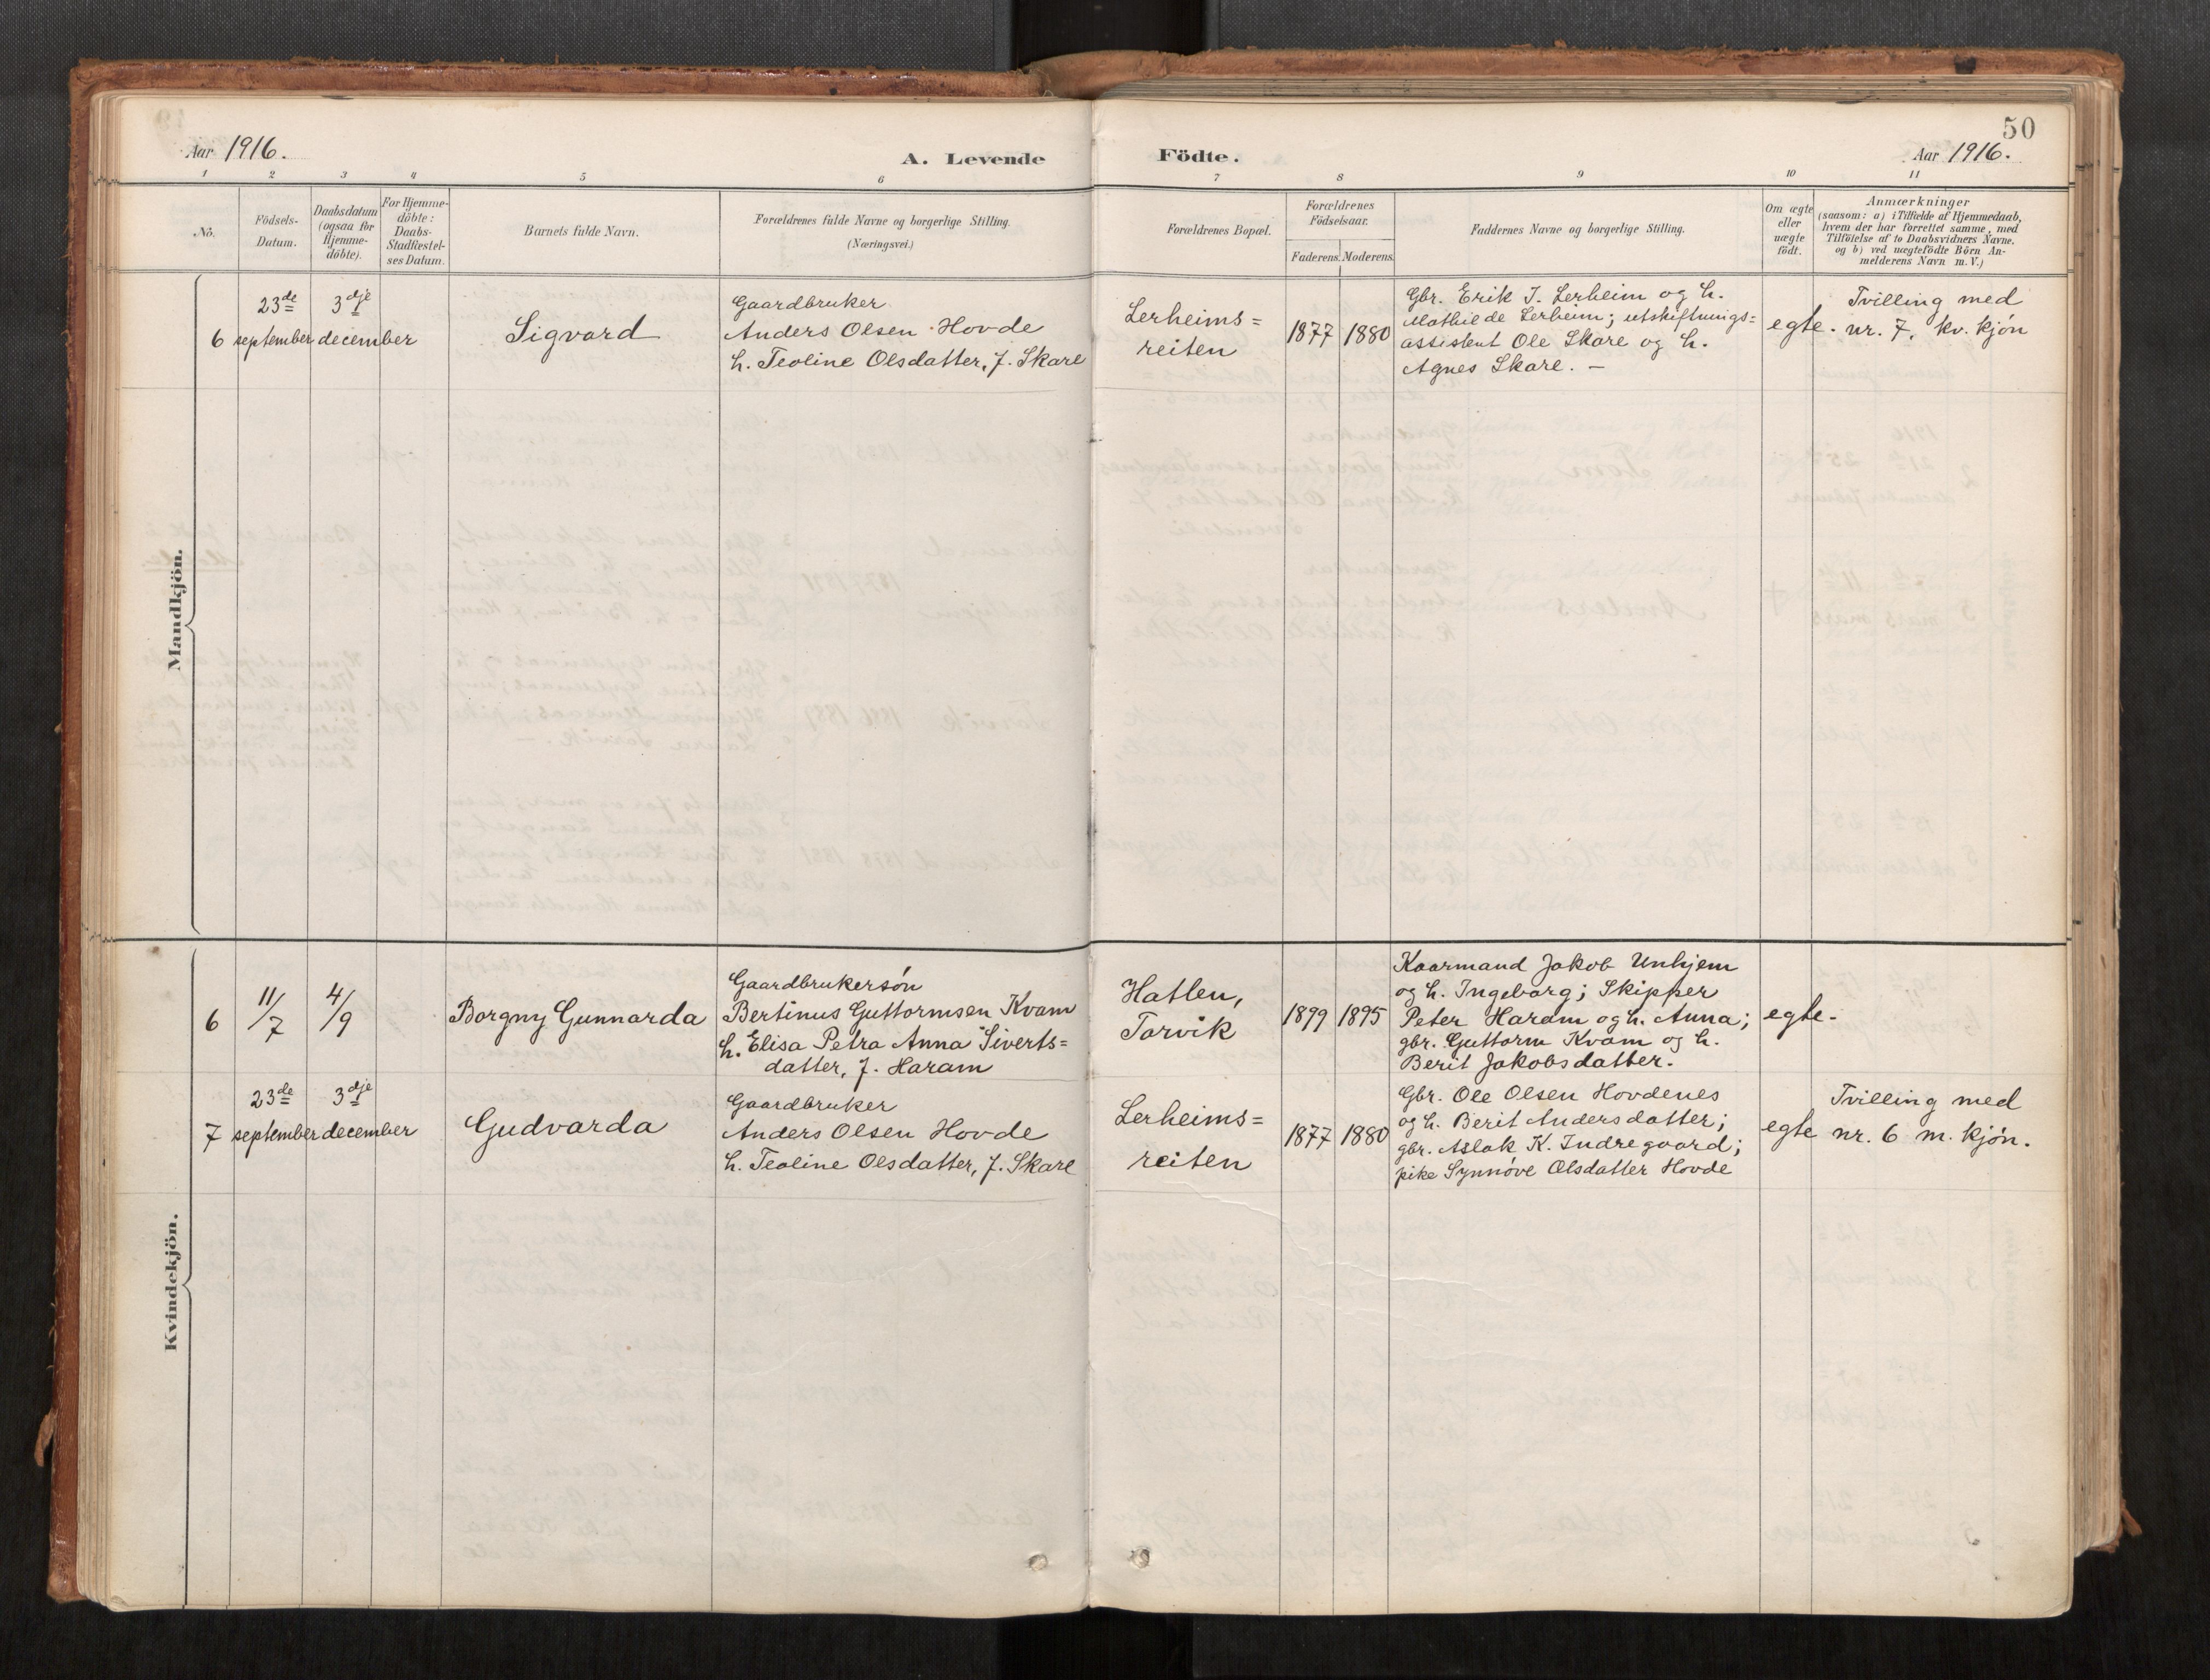 50
Aar 1916.
A. Levende
Födte.
Aar 1916.
1 2 3 4 5 6 7 8 9 10 11
No.
Födsels-
Datum.
Daabsdatum
(ogsaa for
Hjemme-
döbte).
For Hjemme-
döbte:
Daabs-
Stadfæstel-
ses Datum.
Barnets fulde Navn.
Forældrenes fulde Navne og borgerlige Stilling.
(Næringsvei.)
Forældrenes Bopæl.
Forældrenes
Födselsaar.
Faderens. Moderens.
Faddernes Navne og borgerlige Stilling.
Om ægte
eller
uægte
födt.
Anmærkninger
(saasom: a) i Tilfælde af Hjemmedaab,
hvem der har forrettet samme, med
Tilföielse af to Daabsvidners Navne,
og b) ved uægtefödte Börn An-
melderens Navn m. V.)
Mandkjön.
6
23de
september
3dje
december
Sigvard
Gaardbruker
Anders Olsen Hovde
h. Teoline Olsdatter, f. Skare
Lerheims=
reiten
1877 1880
Gbr. Erik J. Lerheim og h.
Mathilde Lerheim; utskiftnings=
assistent Ole Skare og h.
Agnes Skare. —
egte.
Tvilling med
nr. 7. kv. kjön
Kvindekjön.
6
11/7
4/9
Borgny Gunnarda
Gaardbrukersön
Bertinus Guttormsen Kvam
h. Elisa Petra Anna Siverts=
datter, f. Haram
Hatlen,
Torvik
1899 1895
Kaarmand Jakob Unhjem
og h. Ingeborg; Skipper
Peter Haram og h. Anna;
gbr. Guttorm Kvam og h.
Berit Jakobsdatter.
egte.
7
23de
september
3dje
december
Gudvarda
Gaardbruker
Anders Olsen Hovde
h. Teoline Olsdatter, f. Skare
Lerheims=
reiten
1877 1880
Gbr. Ole Olsen Hovdenes
og h. Berit Andersdatter;
gbr. Aslak K. Indregaard;
pike Synnöve Olsdatter Hovde
egte
Tvilling med
nr. 6 m. kjön.